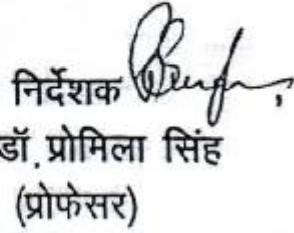 निर्देशक
डॉ. प्रोमिला सिंह
(प्रोफेसर)